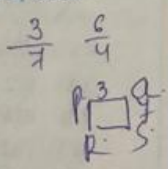 3/7 6/4
P 3 Q
7
R S